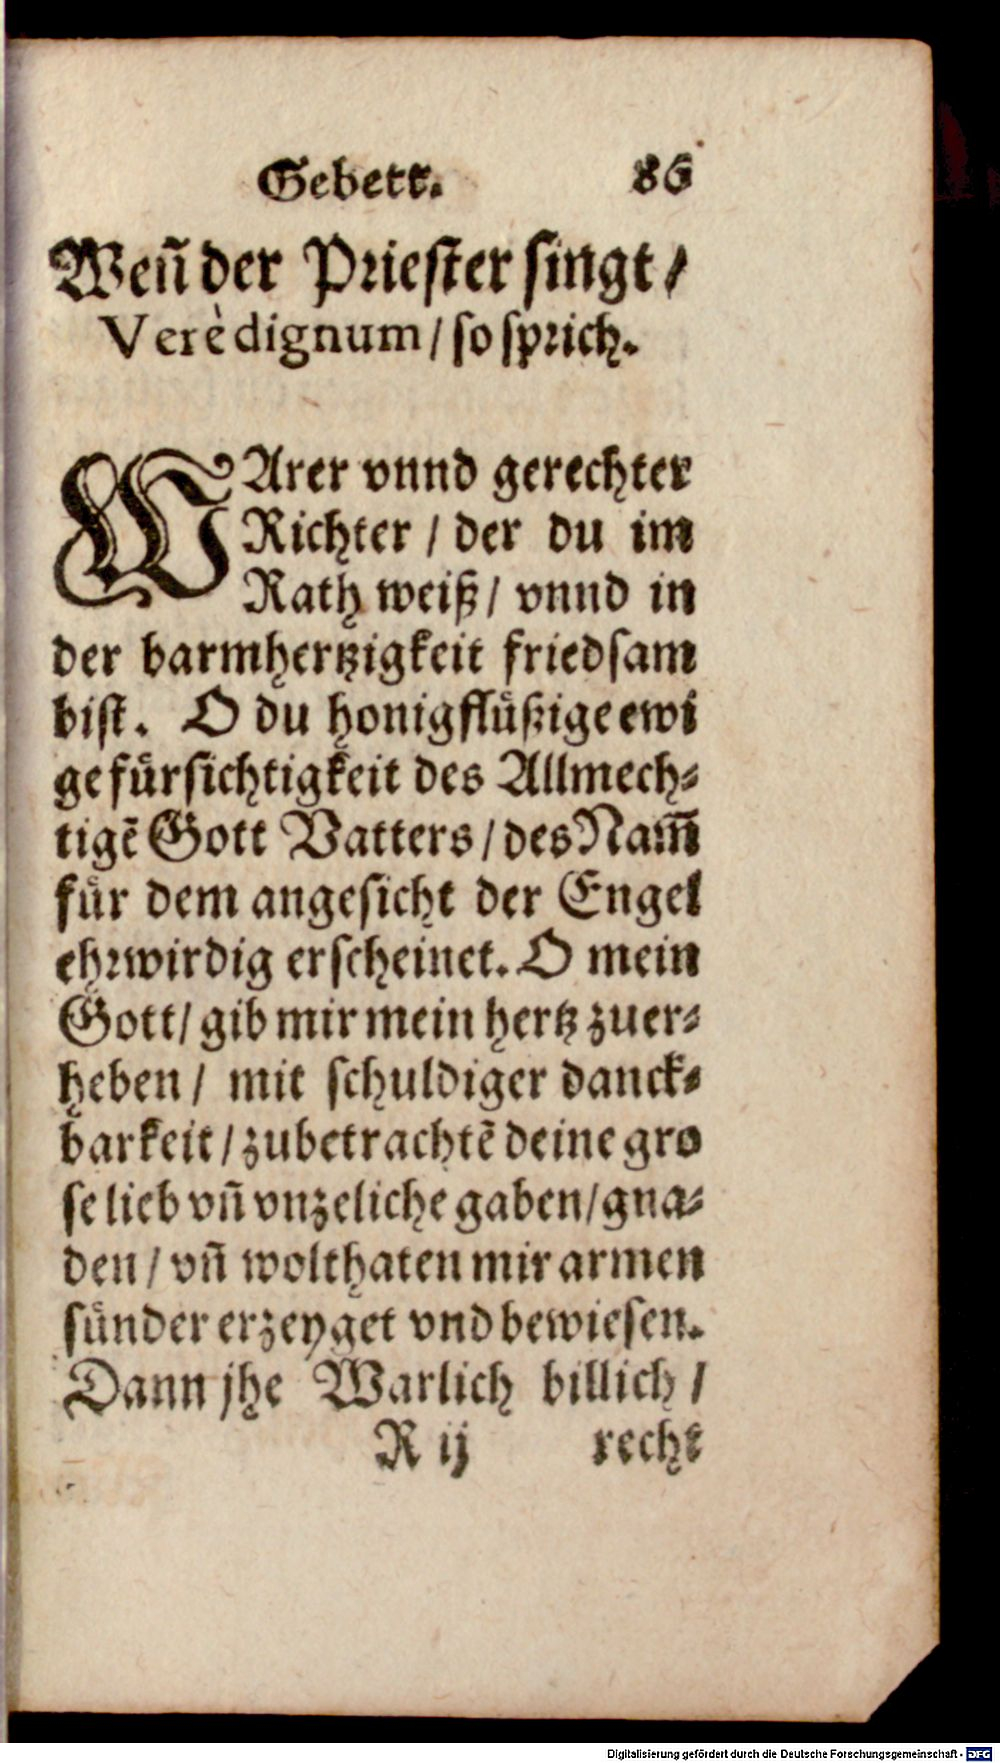 Gebett. 86
Weñ der Priester singt /
Verè dignum / so sprich.
WArer vnnd gerechter
Richter / der du im
Rath weiß / vnnd in
der barmhertzigkeit friedsam
bist. O du honigflüßige ewi
ge fürsichtigkeit des Allmech-
tigẽ Gott Vatters / des Nam̃
für dem angesicht der Engel
ehrwirdig erscheinet. O mein
Gott / gib mir mein hertz zuer-
heben / mit schuldiger danck-
barkeit / zubetrachtẽ deine gro
se lieb vñ vnzeliche gaben / gna-
den / vñ wolthaten mir armen
sünder erzeyget vnd bewiesen.
Dann jhe Warlich billich /
R ij recht
Digitalisierung gefördert durch die Deutsche Forschungsgemeinschaft - DFG